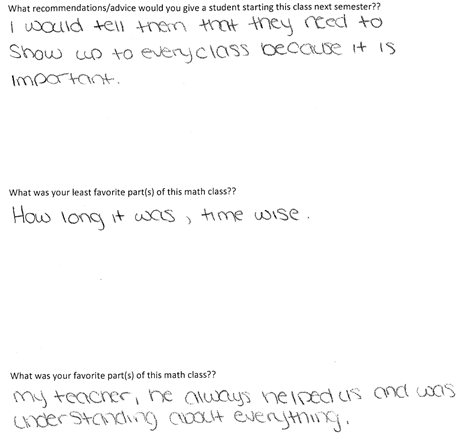 What recommendations/advice would you give a student starting this class next semester??
I would tell them that they need to
Show up to every class because it is
important.
What was your least favorite part(s) of this math class??
How long it was, time wise.
What was your favorite part(s) of this math class??
my teacher, he always helped us and was
understanding about everything.